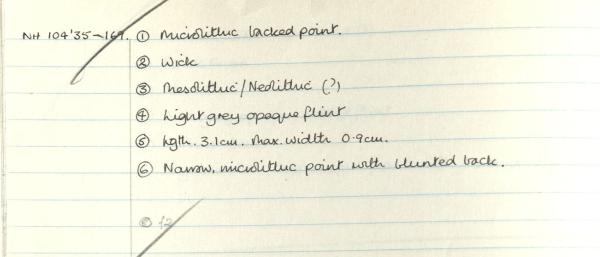 NH 104'35-169. ① Microlithic backed point.
② Wick
③ Mesolithic/Neolithic (?)
④ Light grey opaque flint
⑤ Lgth. 3.1cm. Max. width 0.9cm.
⑥ Narrow, microlithic point with blunted back.
⑧ £2